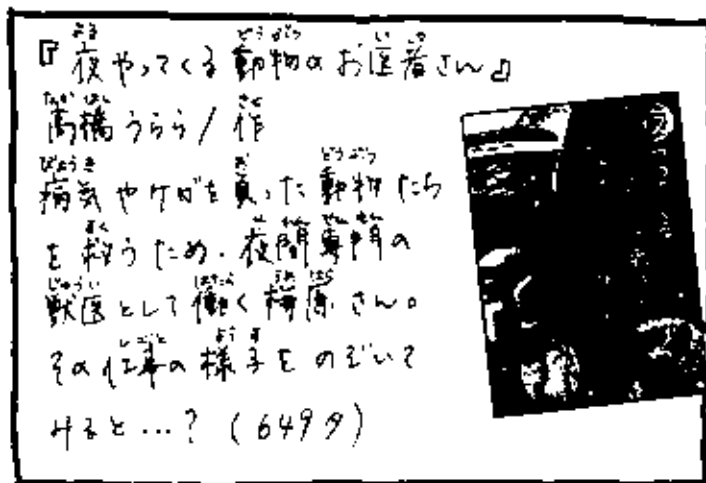 『夜やってくる動物のお医者さん』
高橋うらら/作
病気やケガを負った動物たち
を救うため、夜間専門の
獣医として働く梅原さん。
その仕事の様子をのぞいて
みると…?(649タ)